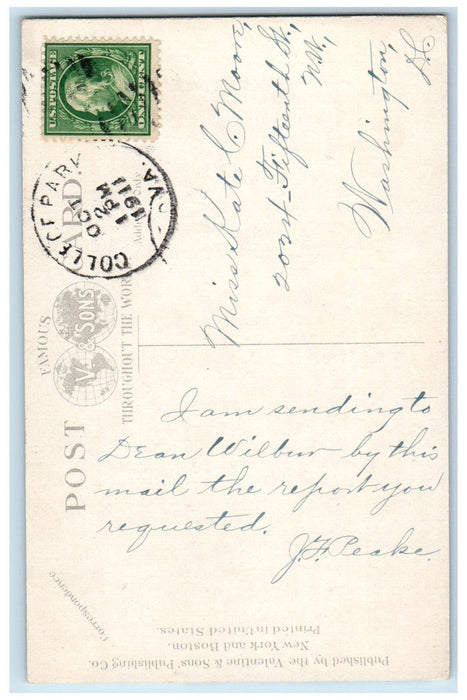 U.S. POSTAGE
ONE CENT
COLLEGE PARK
VA.
OCT
2 PM
1911
FAMOUS
POST CARD
V. & SONS
THROUGHOUT THE WOR
Address
Correspondence
Miss Kate C Moore,
2024-Fifteenth St.,
N.W.,
Washington,
D.C.
I am sending to
Dean Wilbur by this
mail the report you
requested.
J.F. Peake.
Published by the Valentine & Sons Publishing Co.
New York and Boston.
Printed in United States.